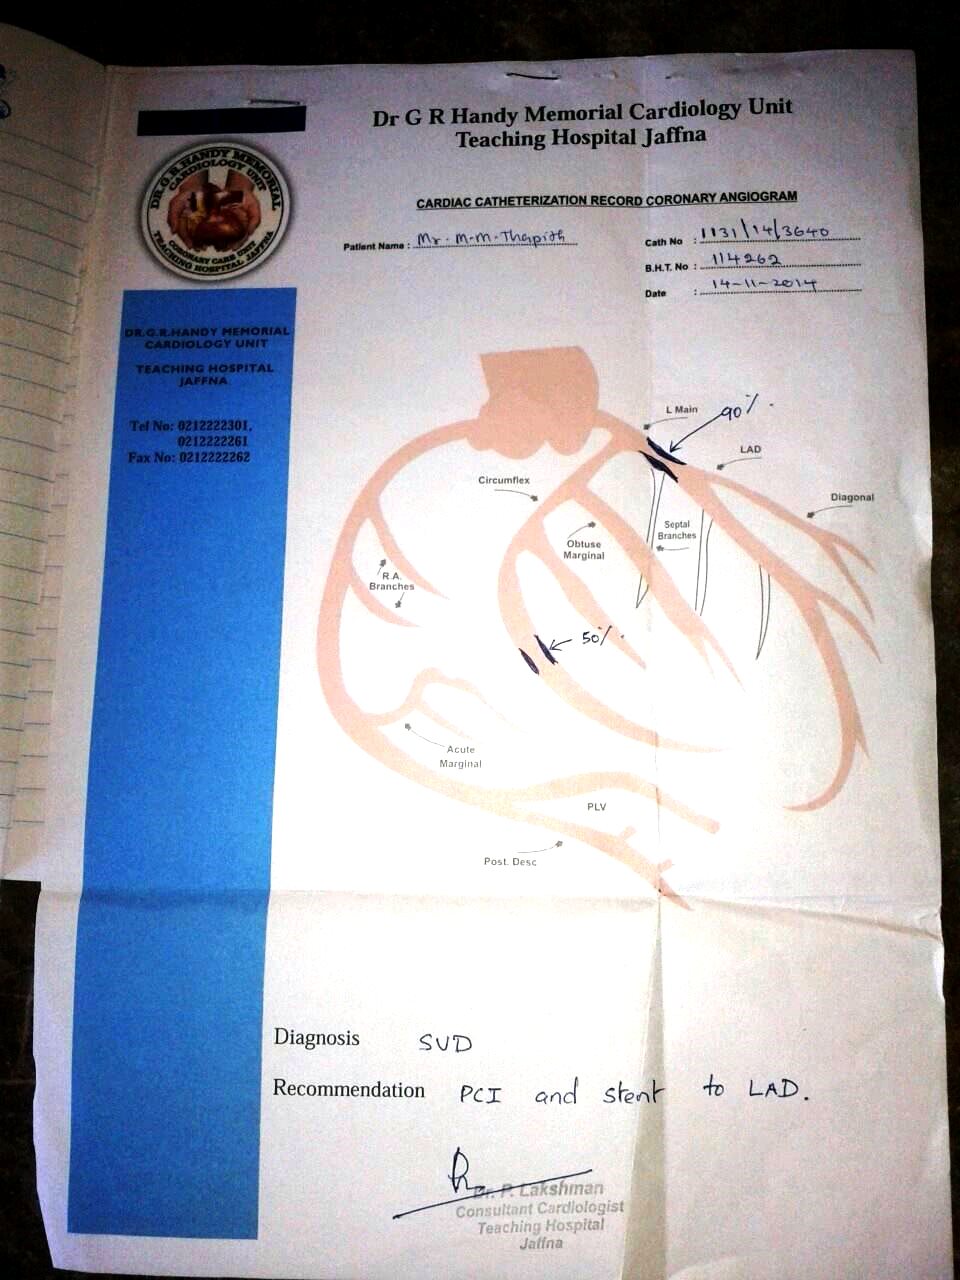 Dr G R Handy Memorial Cardiology Unit
Teaching Hospital Jaffna
DR.G.R.HANDY MEMORIAL CARDIOLOGY UNIT
CORONARY CARE UNIT
TEACHING HOSPITAL JAFFNA
CARDIAC CATHETERIZATION RECORD CORONARY ANGIOGRAM
Patient Name : Mr. M.M. Thapith
Cath No : 1131/14/3640
B.H.T. No : 114262
Date : 14-11-2014
DR.G.R.HANDY MEMORIAL
CARDIOLOGY UNIT
TEACHING HOSPITAL
JAFFNA
Tel No: 0212222301,
0212222261
Fax No: 0212222262
L Main
90%.
LAD
Circumflex
Diagonal
Septal
Branches
Obtuse
Marginal
R.A.
Branches
50%.
Acute
Marginal
PLV
Post. Desc
Diagnosis SVD
Recommendation PCI and stent to LAD.
Dr. P. Lakshman
Consultant Cardiologist
Teaching Hospital
Jaffna